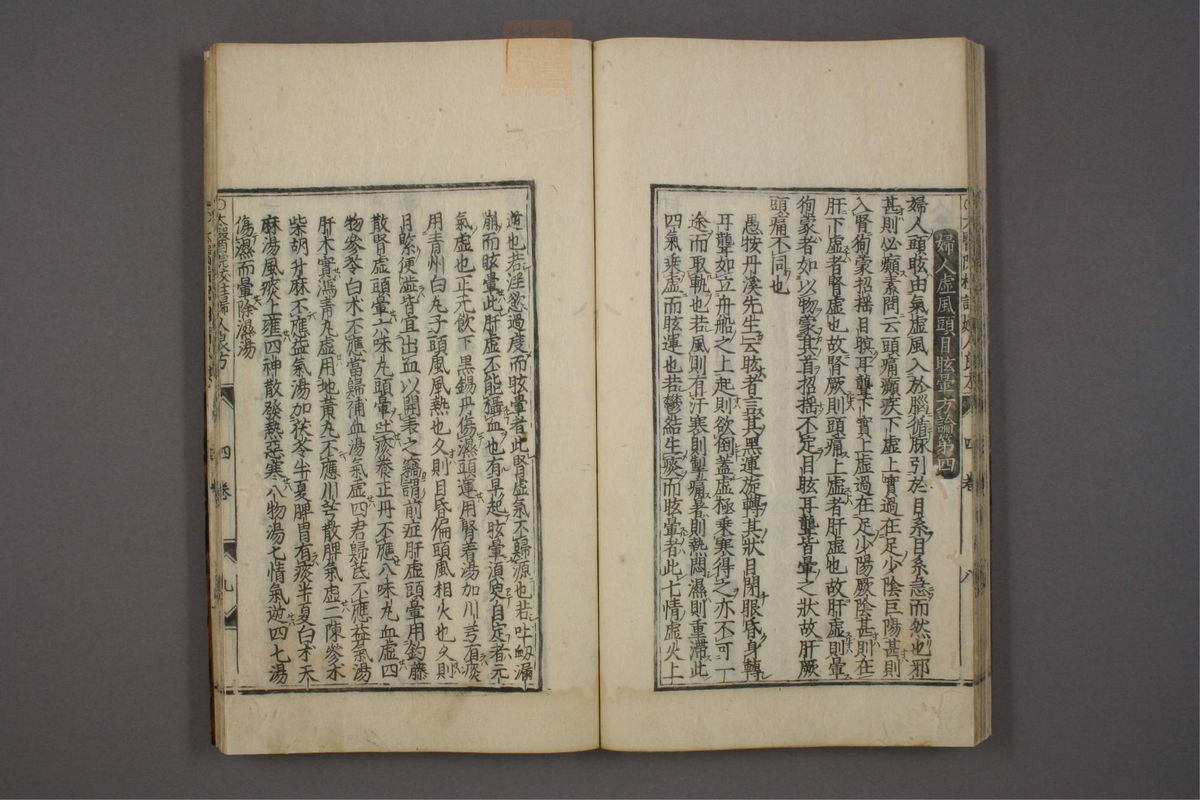 婦人虚風頭目眩暈方論第四
婦人頭眩由氣虚風入於腦循脉引於目系目系急而然也邪
甚則必癲素問云頭痛癲疾下虚上實過在足少陰巨陽甚則
入腎徇蒙招揺目瞑耳聾下實上虚過在足少陽厥陰甚則在
肝下虚者腎虚也故腎厥則頭痛上虚者肝虚也故肝虚則暈
徇蒙者如以物蒙其首招揺不定目眩耳聾皆暈之状故肝厥
頭痛不同也
愚按丹溪先生云眩者言其黒運旋轉其状目閉眼昏身轉
耳聾如立舟船之上起則欲倒蓋虚極乘寒得之亦不可一
途而取軌也若風則有汗寒則掣痛暑則熱悶濕則重滯此
四氣乘虚而眩運也若鬱結生痰而眩暈者此七情虚火上
逆也若淫慾過度而眩暈者此腎虚氣不歸源也若吐衂漏
崩而眩暈此肝虚不能攝血也有早起眩暈須臾自定者元
氣虚也正元飲下黒錫丹傷濕頭運用腎着湯加川芎有痰
用青州白丸子頭風風熱也久則目昏偏頭風相火也久則
目緊便澁皆宜出血以開表之竊謂前症肝虚頭暈用鈎藤
散腎虚頭暈六味丸頭暈吐痰養正丹不應八味丸血虚四
物參苓白术不應當歸補血湯氣虚四君歸芪不應益氣湯
肝木實瀉青丸虚用地黄丸不應川芎散脾氣虚二陳參术
柴胡升麻不應益氣湯加茯苓半夏脾胃有痰半夏白术天
麻湯風痰上壅四神散發熱惡寒八物湯七情氣逆四七湯
傷濕而暈除濕湯
四卷
八
四卷
九